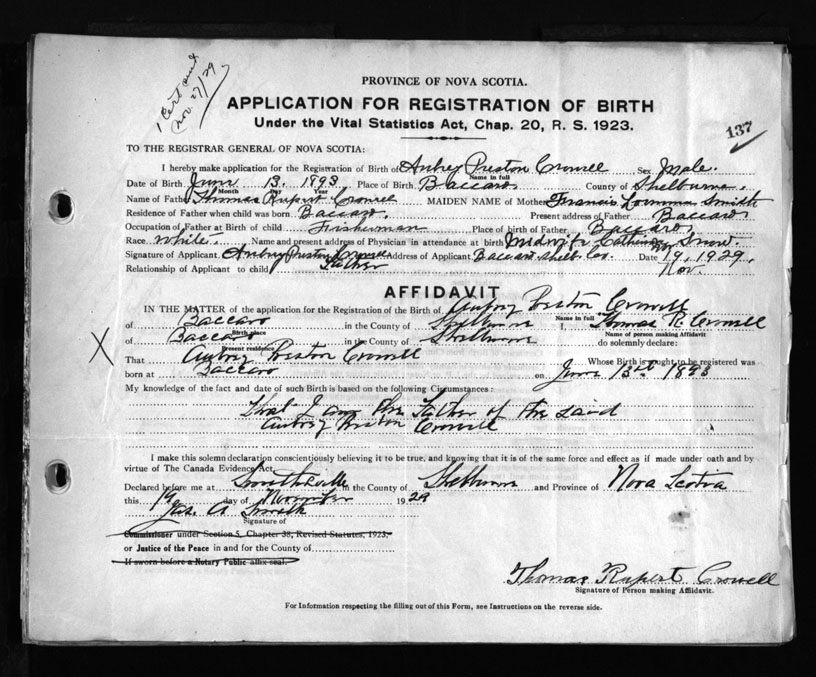 1 Cert and
Nov. 27/29
137
PROVINCE OF NOVA SCOTIA.
APPLICATION FOR REGISTRATION OF BIRTH
Under the Vital Statistics Act, Chap. 20, R. S. 1923.
TO THE REGISTRAR GENERAL OF NOVA SCOTIA:
I hereby make application for the Registration of Birth of Aubrey Preston Crowell Sex Male.
Name in full
Date of Birth June 13. 1893 Place of Birth Baccaro. County of Shelburne.
Month Day Year
Name of Father Thomas Rupert Crowell MAIDEN NAME of Mother Francis Smith
Residence of Father when child was born Baccaro. Present address of Father Baccaro
Occupation of Father at Birth of child Fisherman Place of birth of Father Baccaro,
Race White. Name and present address of Physician in attendance at birth Midwife Catherine Snow.
Signature of Applicant Aubrey Preston Crowell Address of Applicant Baccaro Shelb. Co. Date 19, 1929.
Nov.
Relationship of Applicant to child Father
AFFIDAVIT
IN THE MATTER of the application for the Registration of the Birth of Aubrey Preston Crowell
Name in full
of Baccaro in the County of Shelburne I, Thomas R. Crowell
Birth place Name of person making Affidavit
of Baccaro in the County of Shelburne do solemnly declare:
Present residence
That Aubrey Preston Crowell Whose Birth is sought to be registered was
born at Baccaro on June 13th 1893
My knowledge of the fact and date of such Birth is based on the following Circumstances:
That I am the Father of the said
Aubrey Preston Crowell
X
I make this solemn declaration conscientiously believing it to be true, and knowing that it is of the same force and effect as if made under oath and by
virtue of The Canada Evidence Act.
Declared before me at Smithsville in the County of Shelburne and Province of Nova Scotia
this 19 day of November 1929
Jas. A. Smith
Signature of
Commissioner under Section 5, Chapter 38, Revised Statutes, 1923,
or Justice of the Peace in and for the County of
If sworn before a Notary Public affix seal.
Thomas Rupert Crowell
Signature of Person making Affidavit.
For Information respecting the filling out of this Form, see Instructions on the reverse side.